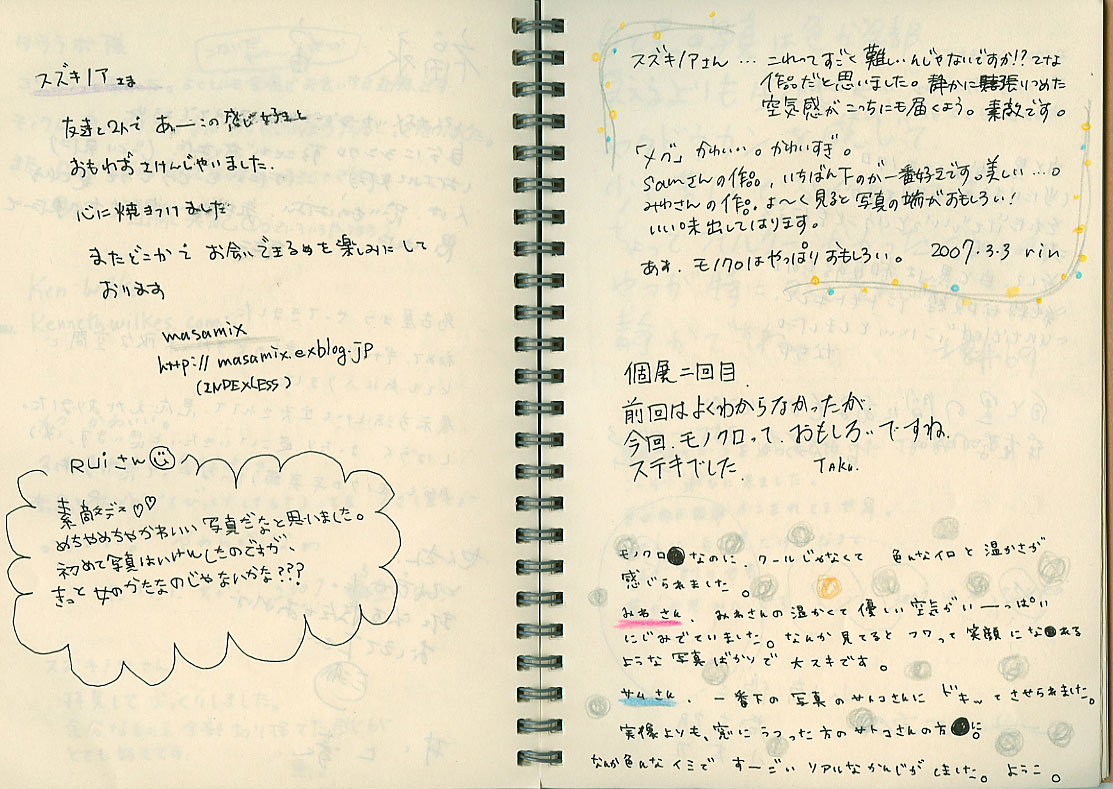 スズキノアさま
友達と2人で あぁー…この感じ好きと
おもわず さけんじゃいました.
心に焼きつけました
またどこかで お会いできるのを楽しみにして
おります
masamix
http://masamix.exblog.jp
(INDEXLESS)
RUiさん
素敵デス♡♡
めちゃめちゃかわいい写真だなと思いました。
初めて写真はいけんしたのですが、
きっと女のかたなのじゃないかな???
スズキノアさん … これってすごく難しいんじゃないですか!? てな
作品だと思いました。静かに張りつめた
空気感がこっちにも届くよう。素敵です。
「メグ」かわいい。かわいすぎ。
samさんの作品、いちばん下のが一番好きです。美しい…。
みわさんの作品、よ〜く見ると写真の端がおもしろい!
いい味出してはります。
あぁ、モノクロはやっぱりおもしろい。 2007.3.3 rin
個展二回目.
前回はよくわからなかったが、
今回、モノクロって、おもしろいですね.
ステキでした TAKU.
モノクロ●なのに、クールじゃなくて 色んなイロと温かさが
感じられました。
みわさん、みわさんの温かくて優しい空気がいーっぱい
にじみでていました。なんか見てると フワって笑顔にな●れる
ような写真ばかりで大スキです。
サムさん、一番下の写真のサトコさんに ドキッてさせられました。
実像よりも、窓にうつった方のサトコさんの方●に。
なんか色んなイミで すーごい リアルなかんじがしました。 ようこ。